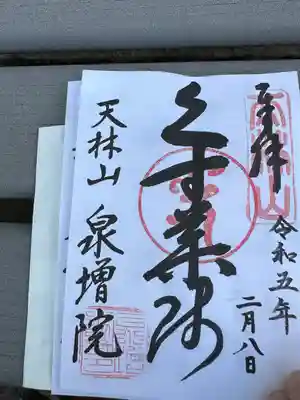 奉拝
令和五年
二月八日
くす薬師
天林山
泉増院